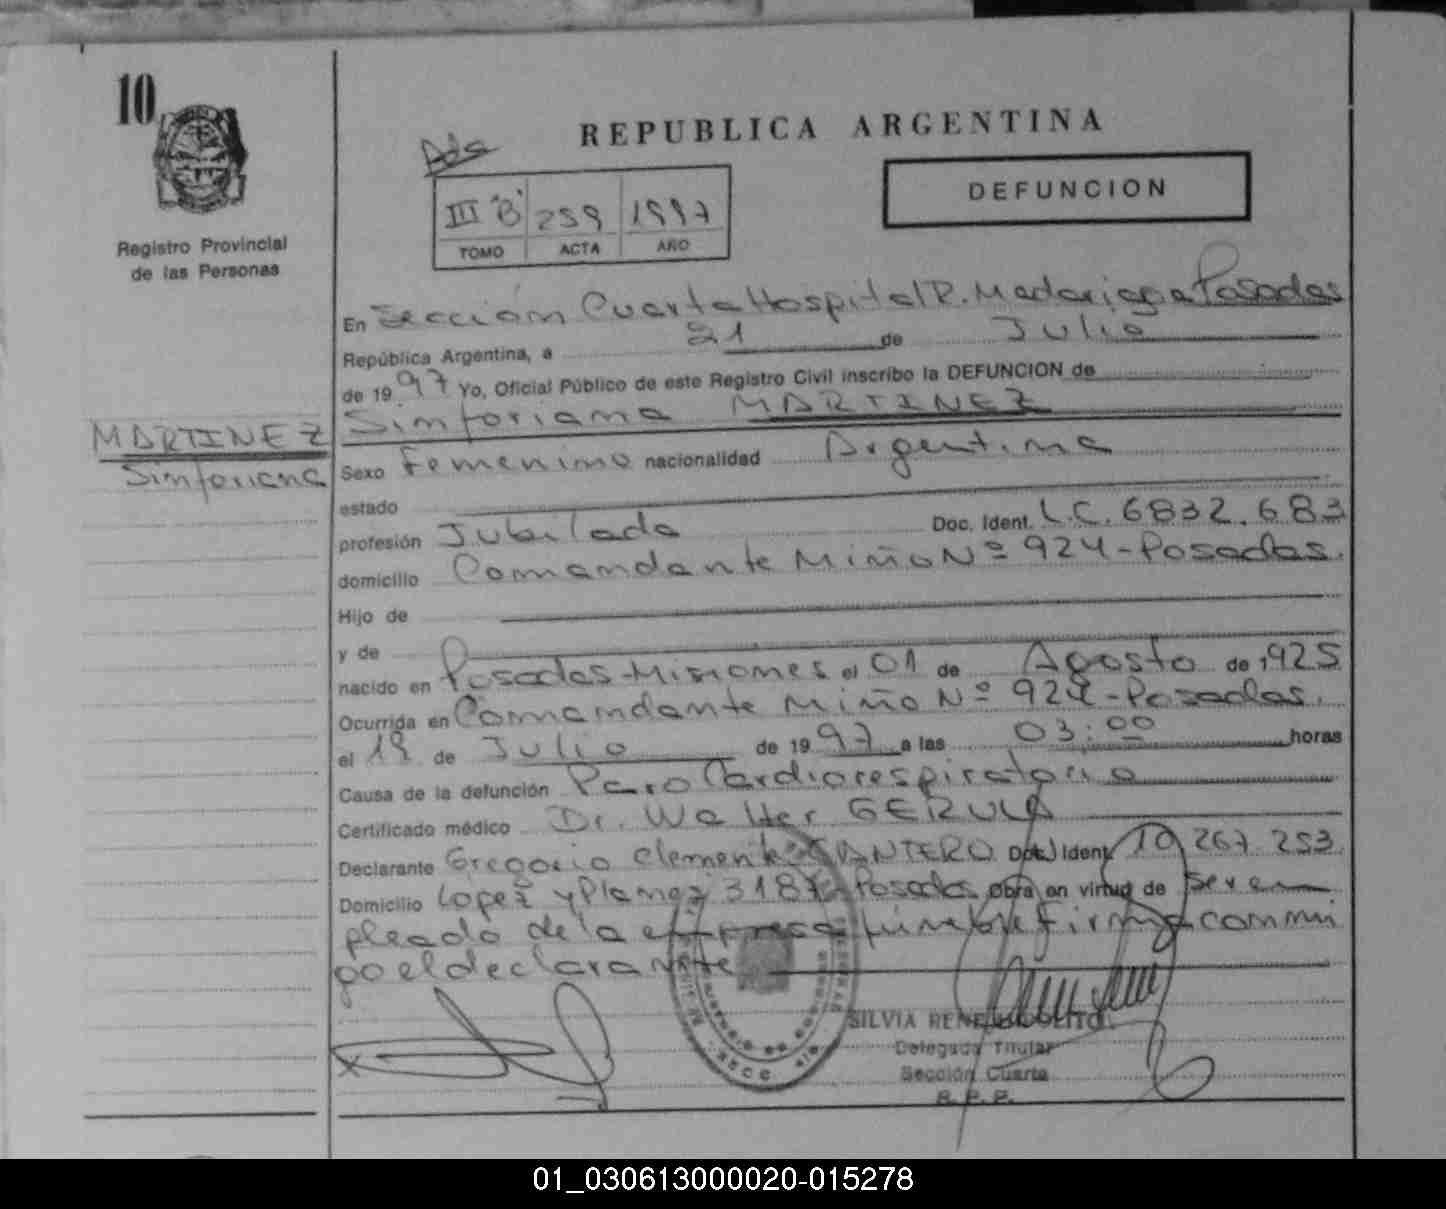 10
Registro Provincial
de las Personas
REPUBLICA ARGENTINA
III "B" 259 1997
TOMO ACTA AÑO
DEFUNCION
En Sección Cuarta Hospital R. Madariaga Posadas
República Argentina, a 21 de Julio
de 1997 Yo, Oficial Público de este Registro Civil inscribo la DEFUNCION de
Sinforiana MARTINEZ
MARTINEZ
Sinforiana
Sexo Femenino nacionalidad Argentina
estado
profesión Jubilada Doc. Ident. L.C. 6832.683
domicilio Comandante Miño Nº 924-Posadas.
Hijo de
y de
nacido en Posadas-Misiones el 01 de Agosto de 1925
Ocurrida en Comandante Miño Nº 924-Posadas.
el 19 de Julio de 1997 a las 03:00 horas
Causa de la defunción Paro Cardiorespiratorio
Certificado médico Dr. Walter GERULA
Declarante Gregorio Clemente SANTERO Doc. Ident. 10 267 253
Domicilio Lopez y Planez 3187 Posadas Obra en virtud de ser em
pleado de la empresa fúnebre firma conmi
go el declarante
SILVIA RENE
Delegada Titular
Sección Cuarta
R. P. P.
01_030613000020-015278